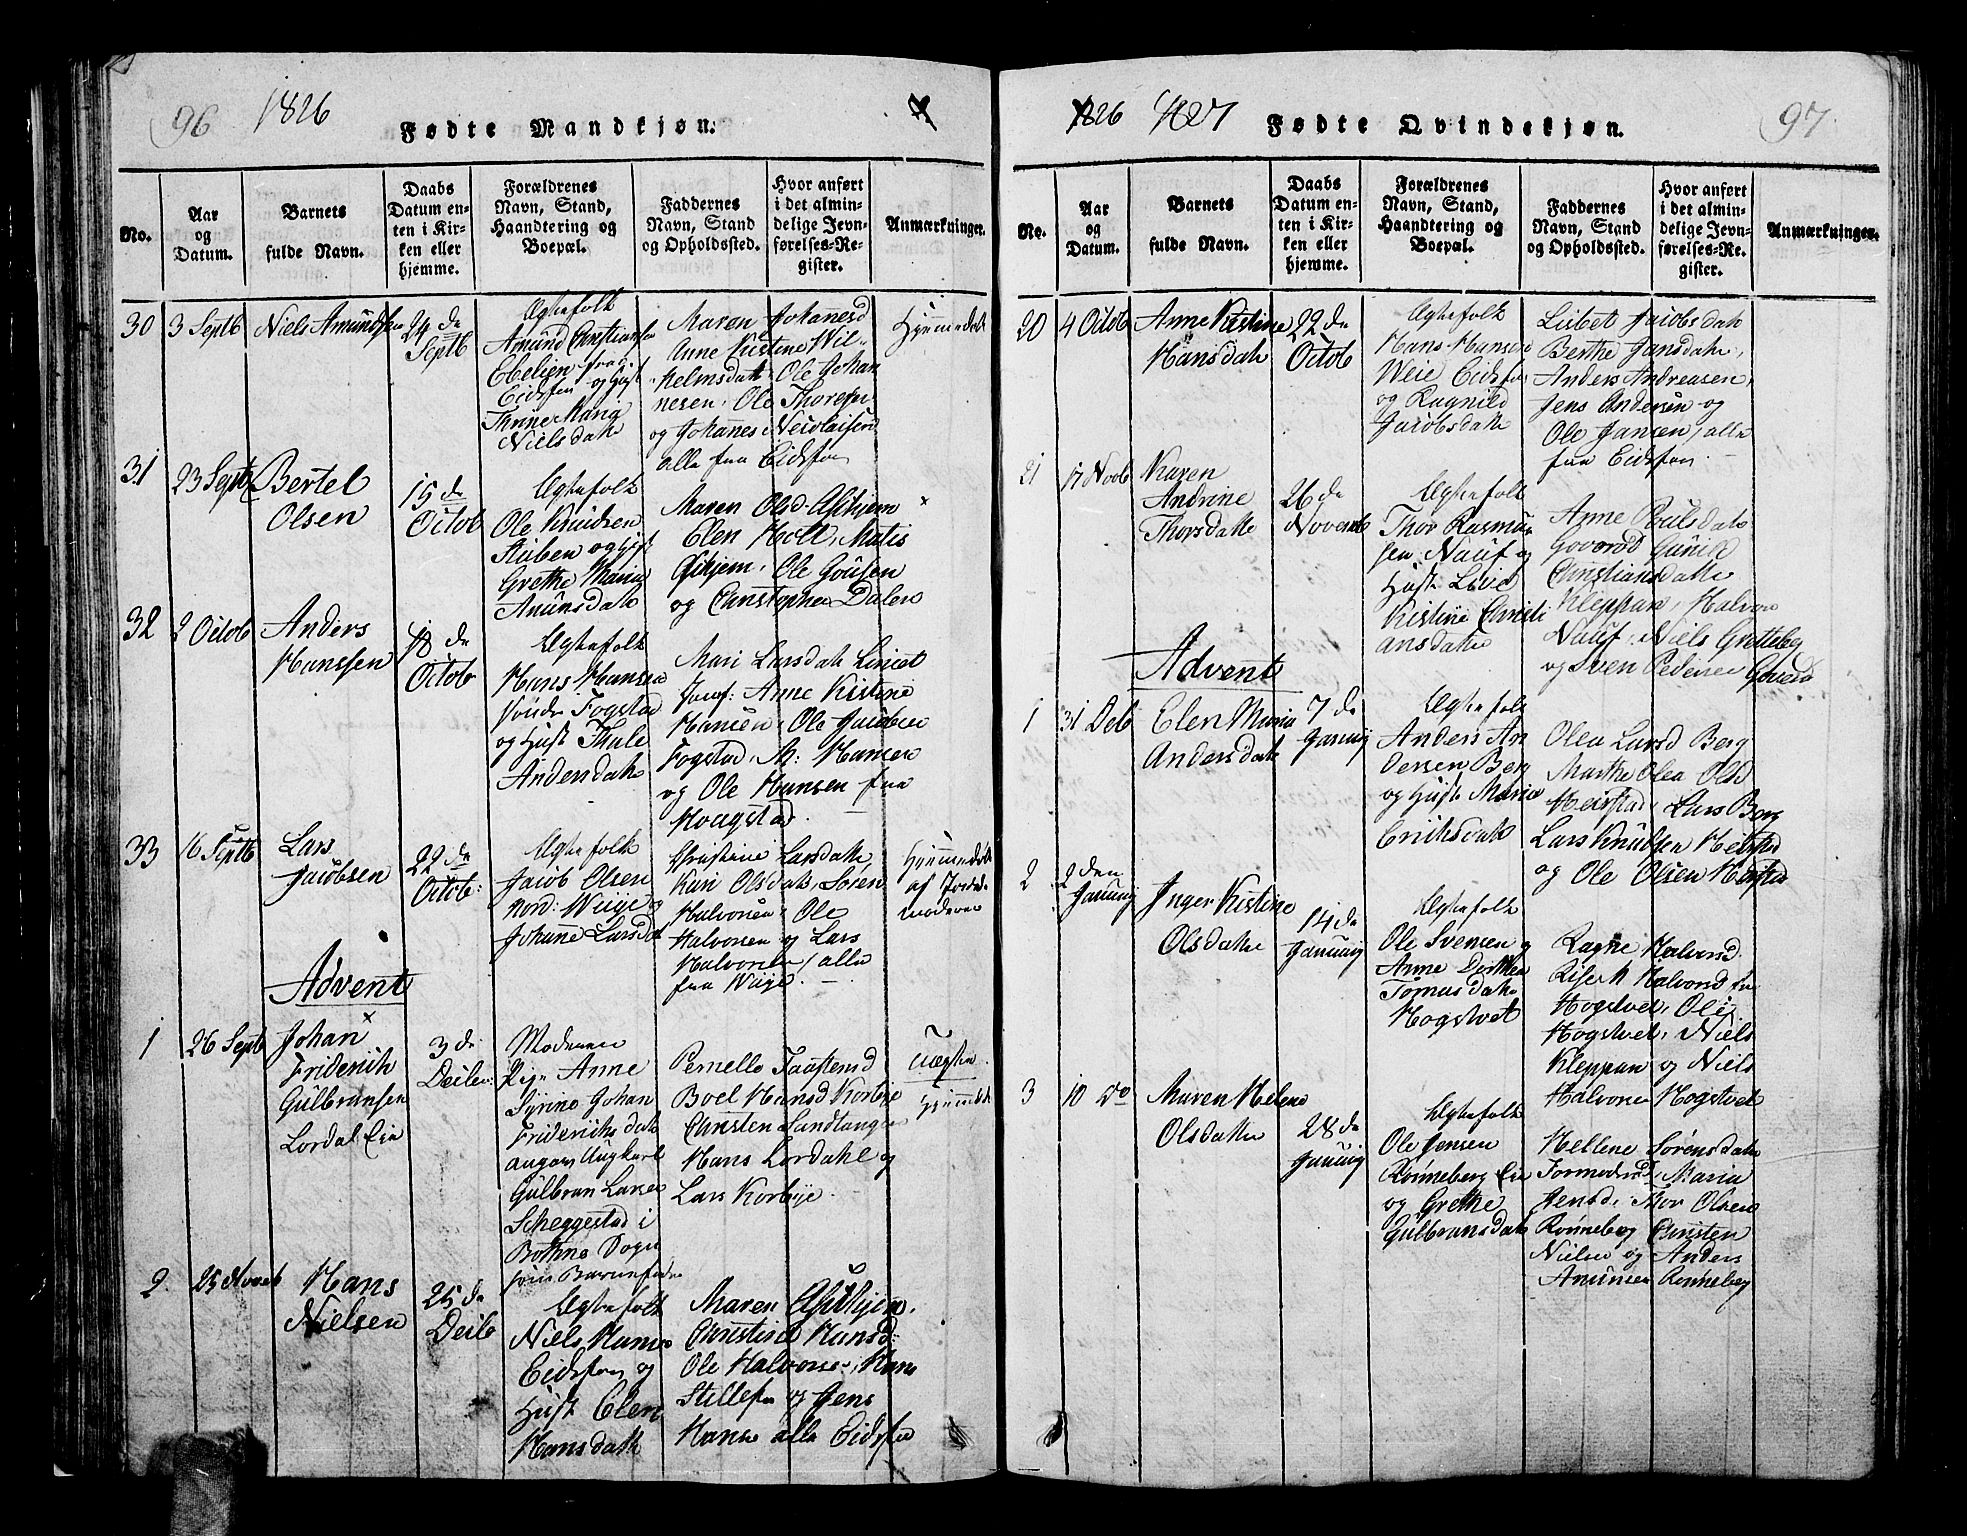 96 1826
Fødte Mandkjøn.
No.
Aar
og
Datum.
Barnets
fulde Navn.
Daabs
Datum en-
ten i Kir-
ken eller
hjemme.
Forældrenes
Navn, Stand,
Haandtering og
Boepæl.
Faddernes
Navn, Stand
og Opholdssted.
Hvor anført
i det almin-
delige Jevn-
førelses-Re-
gister.
Anmærkninger.
30
3 Septb
Niels Amundsen
24 de
Septb
Ægtefolk
Amund Christiansen
Eidsfos og Hust
Anne Karie
Nielsdatt
Maren Johanesd
Anne Kistine Wil-
helmsdatt. Ole Johan
nesen. Ole Thoresen
og Johanes Nicolaisen
alle fra Eidsfos
Hjemmedøbt
31
23 Septb
Bertel
Olsen
15 de
Octob
Ægtefolk
Ole Knudsen
og Hust
Grethe Maria
Amunsdatt
Maren Olsd Askjem
Elen Holt, Matis
Askjem, Ole Gousen
og Christopher Dalen
32
2 Octob
Anders
Hanssen
18 de
Octob
Ægtefolk
Hans Hansen
Fogstad
og Hust Thale
Andersdatt
Mari Larsdatt
Jomf: Anne Kistine
Hansen, Ole Jacobsen
Fogstad, A: Hansen
og Ole Hansen fra
Hougstad.
33
16 Septb
Lars
Jacobsen
22 de
Octob:
Ægtefolk
Jacob Olsen
Nord: Weiye og
Johanne Larsdat
Christine Larsdatt
Kari Olsdatt, Søren
Halvorsen, Ole
Halvorsen og Lars
Halvorsen, alle
fra Wiiye.
Hjemmedøbt
af Jorde-
moderen
Advent
1
26 Septb
Johan
Friderich
Gulbransen
Lordal Eie
3 de
Decbr:
Moderen
Pige Anne
Johan
Friderichsdatt
angav Ungkarl
Gulbran Larsen
Scheggestad i
Bothne Sogn
som Barnefader
Pernelle Taaftensd
Boel Hansd Korbye
Christen Sandtangen
Hans Lordahl og
Lars Korbye.
Uægte
Hjemmdbt
2
25 Noveb
Hans
Nielsen
25 de
Decb
Ægtefolk
Niels Hansen
Eidsfos og
Hust Elen
Hansdatt
Maren Askjem.
Christine Hansd:
Ole Halvorsen, Hans
Stillefsen og Jens
Hansen alle Eidsfos
1826 1827
Fødte Qvindekjøn.
97
No.
Aar
og
Datum.
Barnets
fulde Navn.
Daabs
Datum en-
ten i Kir-
ken eller
hjemme.
Forældrenes
Navn, Stand,
Haandtering og
Boepæl.
Faddernes
Navn, Stand
og Opholdssted.
Hvor anført
i det almin-
delige Jevn-
førelses-Re-
gister.
Anmærkninger.
20
4 Octob
Anne Kistine
Hansdatt
22 de
Octob
Ægtefolk
Hans Hansen
Weie Eidsfos
og Ragnild
Jacobsdatt
Lisbet Jacobsdatt
Berthe Jansdatt,
Anders Andreasen,
Jens Andersen og
Ole Jansen, alle
fra Eidsfos.
21
17 Novb
Karen
Andrine
Thorsdatte
26 de
Novemb
Ægtefolk
Thor Rasmus
sen Nauf og
Hust Live
Kistine Christi
ansdatter
Anne Poulsdatt
Goverød Gunild
Christiansdatter
Kleppan, Halvor
Nauf, Niels Gretteberg
og Sven Pedersen Goverød
Advent
1
31 Deb
Elen Maria
Andersdatt
7 de
Januarj
Ægtefolk
Anders An
dersen Berg
og Hust Maria
Eriksdatt
Olea Larsd Berg
Marthe Olea Olsd
Heirstad, Lars Berg
Lars Knudsen Heirstad
og Ole Olsen Heirstad
2
2 den
Januarj
Inger Kistine
Olsdatter
14 de
Januarj
Ægtefolk
Ole Svensen og
Anne Dorthea
Tomasdatt
Hogstvet
Ragne Halvorsd.
Halvorsd
Hogstvet, Ole
Hogstvet, Niels
Kleppan og Niels
Halvorsen Hogstvet
3
10 do
Maren Helene
Olsdatter
28 de
Januarj
Ægtefolk
Ole Jensen
Rønneberg Eie
og Grethe
Gulbransdatt
Hellene Sørensdatt
Formodrød, Maria
Jensd, Thor Olsen
Rønneberg Christen
Nielsen og Anders
Amunsen Rønneberg